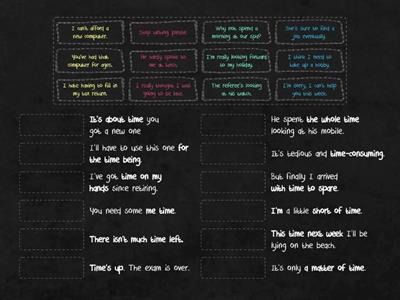 I can't afford a
new computer.
Stop writing please.
Why not spend a
morning at our spa?
She's sure to find a
job eventually.
You've had that
computer for ages.
He hardly spoke to
me at lunch.
I'm really looking forward
to my holiday.
I think I need to
take up a hobby.
I hate having to fill in
my tax return.
I really thought I was
going to be late.
The referee's looking
at his watch.
I'm sorry, I can't help
you this week.
It's about time you
got a new one
He spent the whole time
looking at his mobile.
I'll have to use this one for
the time being.
It's tedious and time-consuming.
I've got time on my
hands since retiring.
But finally I arrived
with time to spare.
You need some me time.
I'm a little short of time.
There isn't much time left.
This time next week I'll be
lying on the beach.
Time's up. The exam is over.
It's only a matter of time.